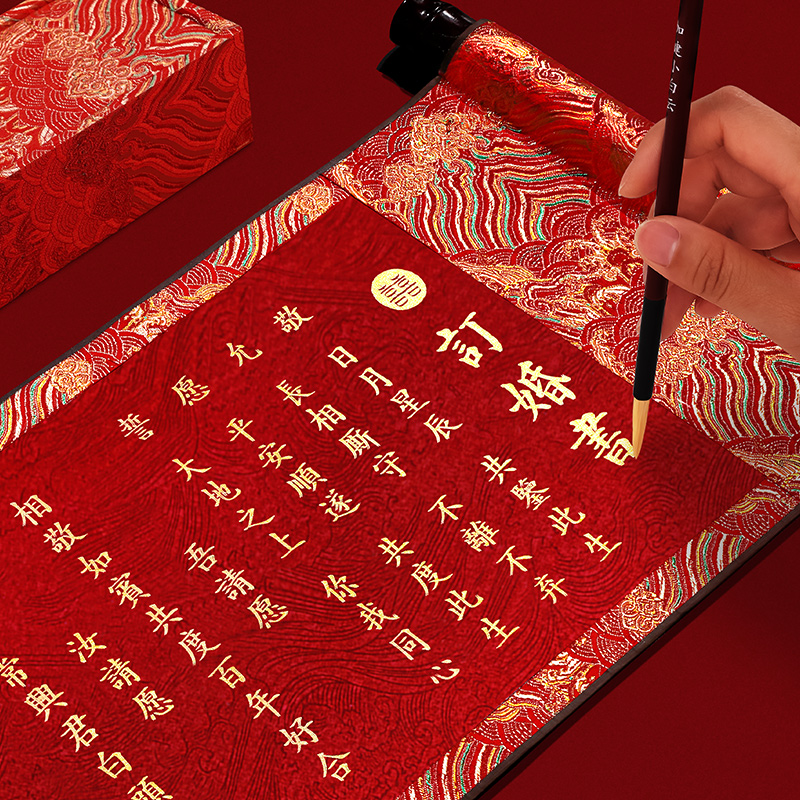 囍
訂婚書
敬允愿誓
日月星辰 共鑒此生
長相厮守 不離不弃
平安順遂 共度此生
大地之上 你我同心
吾請愿
相敬如賓共度百年好合
汝請愿
常興君白頭